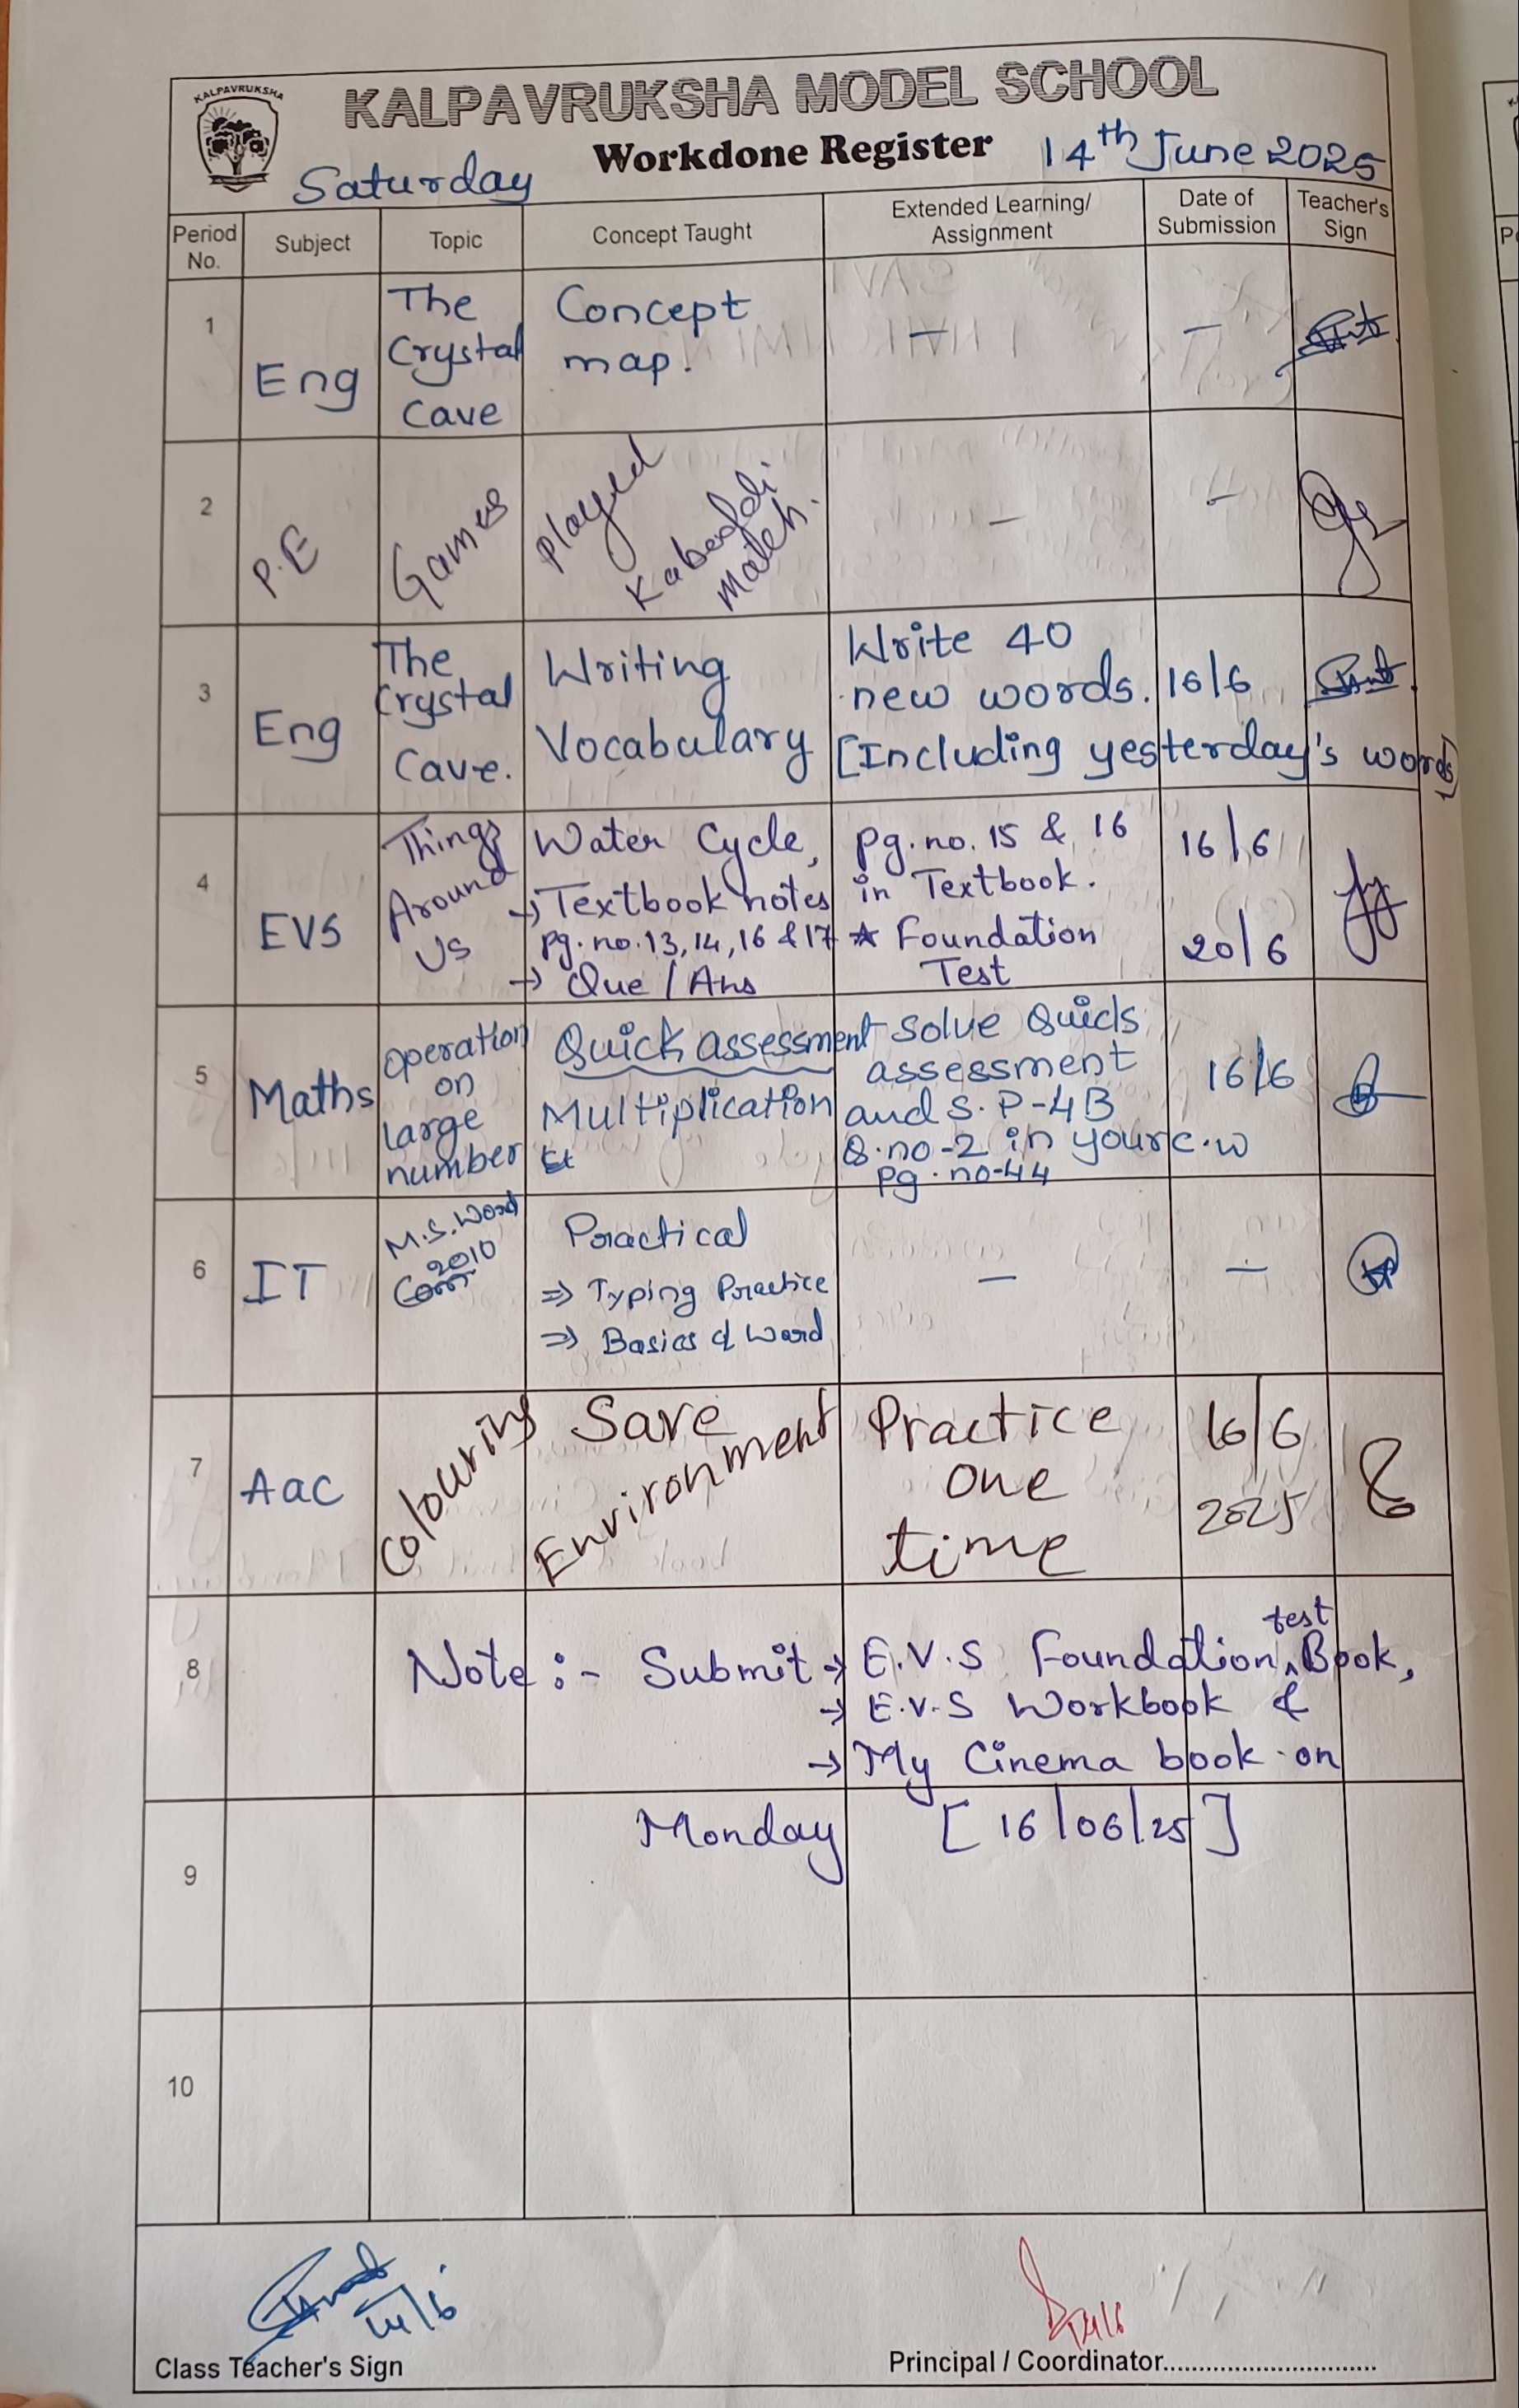 KALPAVRUKSHA
KALPAVRUKSHA MODEL SCHOOL
Workdone Register
Saturday
14th June 2025
Period No.
Subject
Topic
Concept Taught
Extended Learning/ Assignment
Date of Submission
Teacher's Sign
1
Eng
The
Crystal
Cave
Concept
map.
—
—
2
P.E
Games
Played
Kabaddi
Match.
—
-
3
Eng
The
Crystal
Cave.
Writing
Vocabulary
Write 40
new words.
[Including yesterday's words]
16/6
4
EVS
Things
Around
Us
Water Cycle,
→ Textbook notes
pg. no. 13, 14, 16 & 17
→ Que / Ans
pg. no. 15 & 16
in Textbook.
★ Foundation
Test
16/6
20/6
5
Maths
operation
on
large
number
Quick assessment
Multiplication
solve Quick
assessment
and S. P-4B
Q.no-2 in your c.w
pg. no-44
16/6
6
IT
M.S. Word
2010
Practical
⇒ Typing Practice
⇒ Basics of Word
—
—
7
Aac
Colouring
Save
Environment
Practice
one
time
16/6
2025
8
Note :- Submit → E.V.S Foundation test Book,
→ E.V.S Workbook &
→ My Cinema book on
9
Monday [16/06/25]
10
14/6
14/6
Class Teacher's Sign
Principal / Coordinator..............................